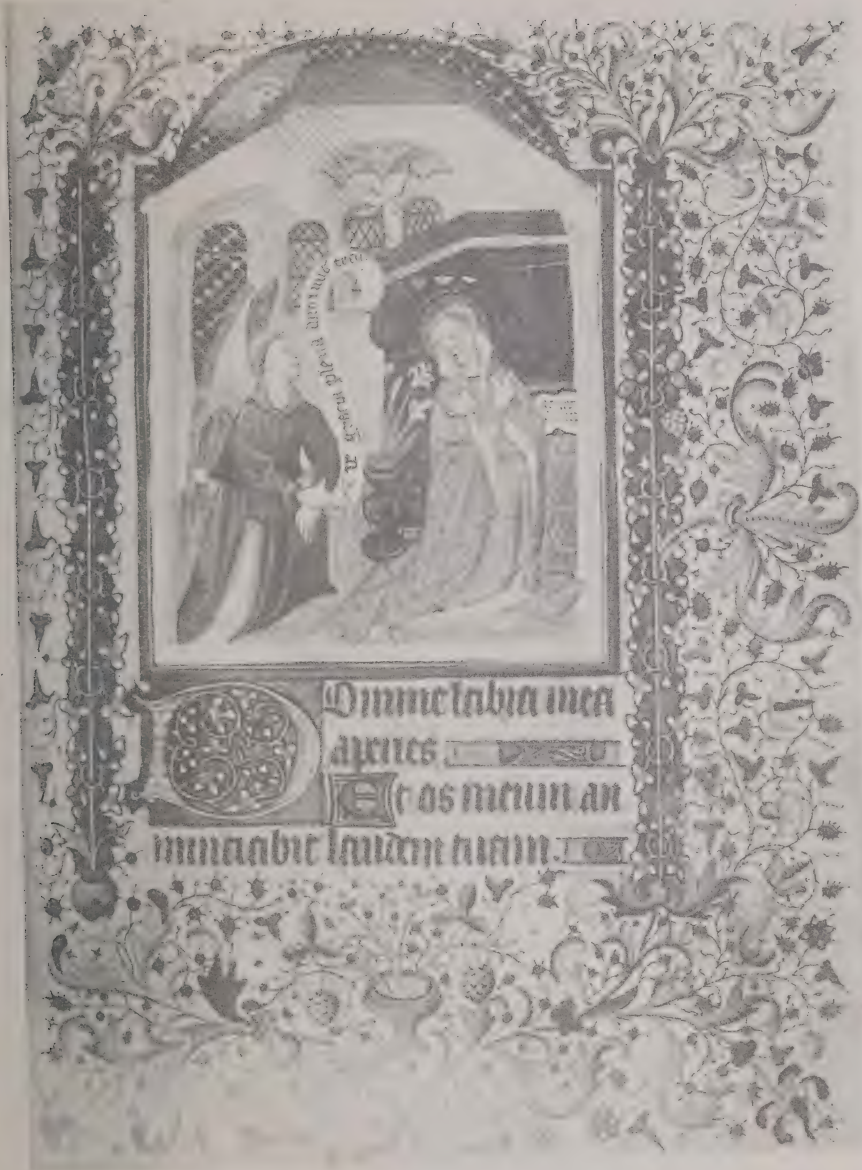 gracia plena dominus tecu
Domine labia mea
aperies
Et os meum an
nunciabit laudem tuam.